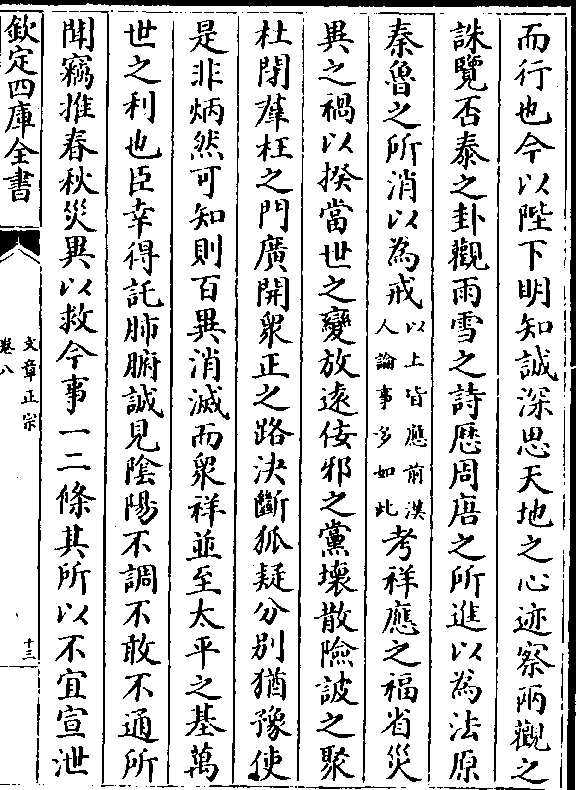 而行也今以陛下明知誠深思天地之心迹察兩觀之
誅覽否泰之卦觀雨雪之詩歴周唐之所進以為法原
秦魯之所消以為戒以上皆應前漢人論事多如此考祥應之福省災
異之禍以揆當世之變放遠佞邪之黨壞散險詖之聚
杜閉羣枉之門廣開衆正之路決斷狐疑分别猶豫使
是非炳然可知則百異消滅而衆祥並至太平之基萬
世之利也臣幸得託肺腑誠見陰陽不調不敢不通所
聞竊推春秋災異以救今事一二條其所以不宜宣泄
欽定四庫全書
文章正宗
卷八
十三